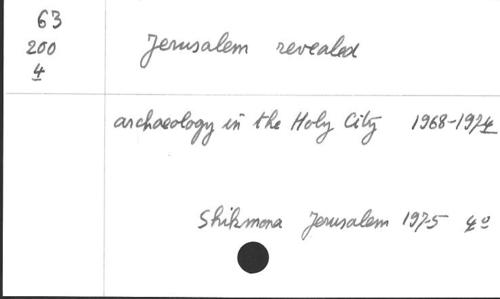 63
200
4
Jerusalem revealed
archaeology in the Holy City 1968-1974
Shikmona Jerusalem 1975 4º